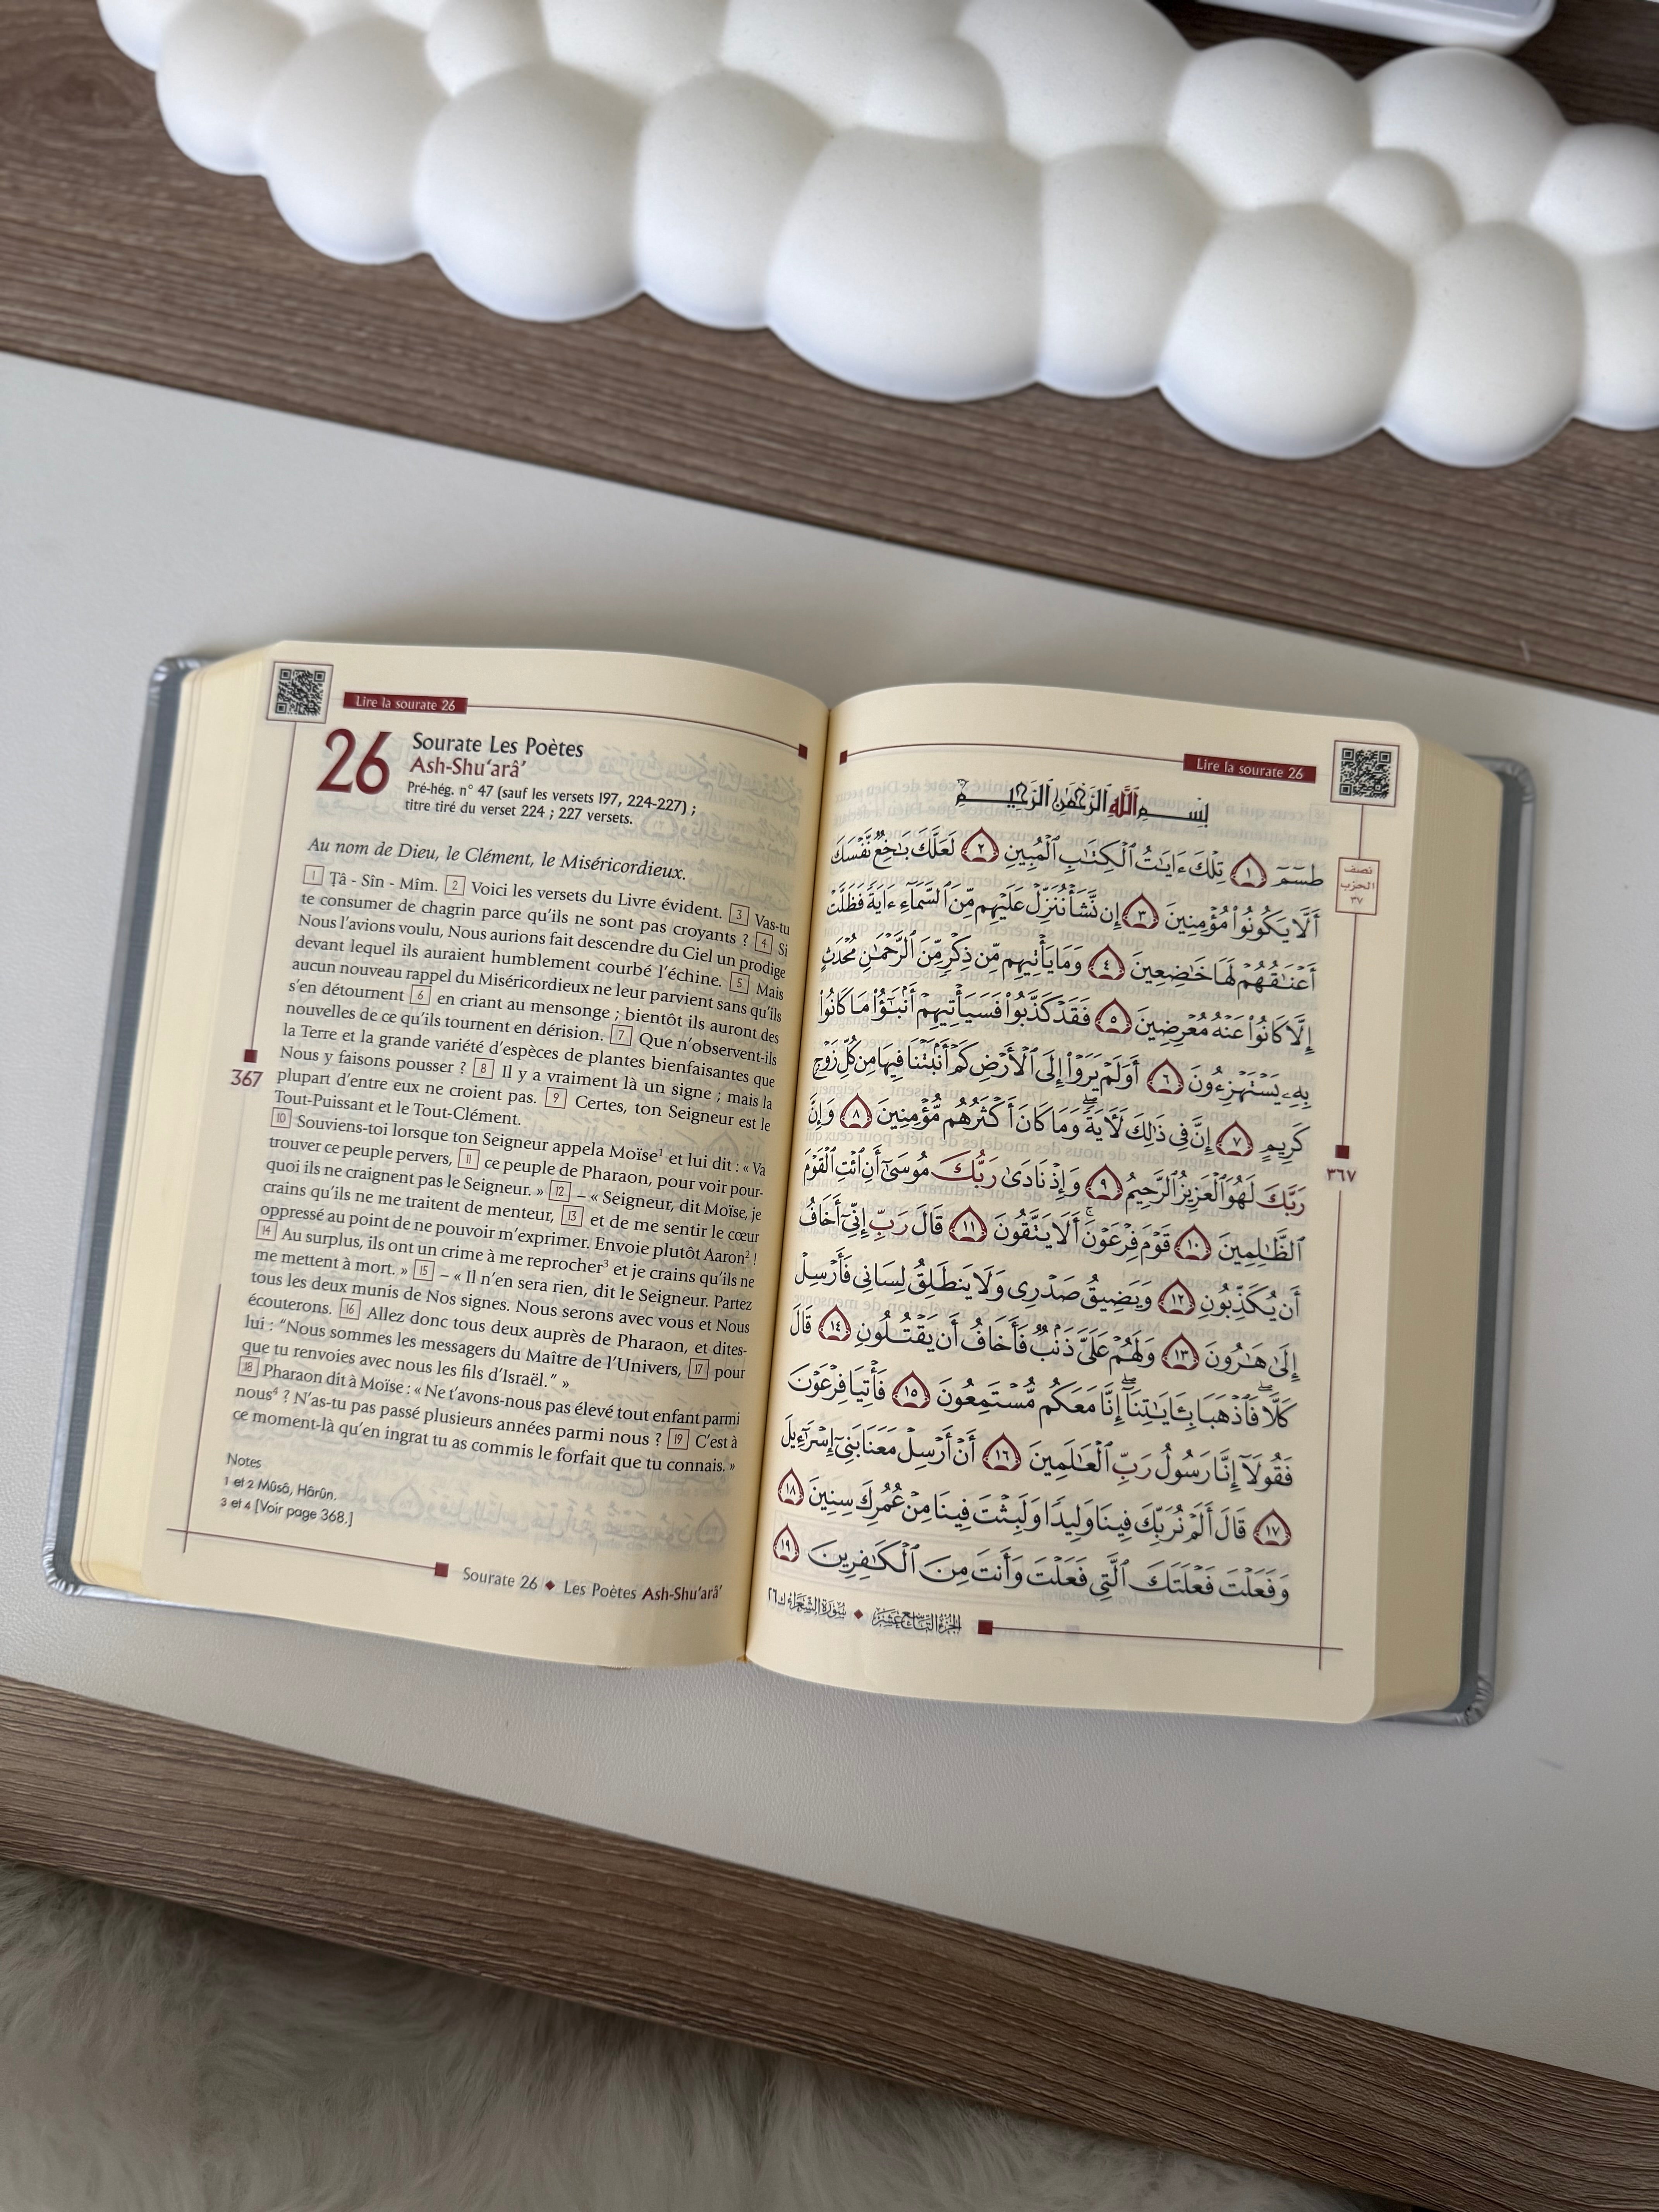 Lire la sourate 26
26
Sourate Les Poètes
Ash-Shu‘arâ’
Pré-hég. n° 47 (sauf les versets 197, 224-227) ;
titre tiré du verset 224 ; 227 versets.
Au nom de Dieu, le Clément, le Miséricordieux.
1 Ṭâ - Sîn - Mîm. 2 Voici les versets du Livre évident. 3 Vas-tu
te consumer de chagrin parce qu’ils ne sont pas croyants ? 4 Si
Nous l’avions voulu, Nous aurions fait descendre du Ciel un prodige
devant lequel ils auraient humblement courbé l’échine. 5 Mais
aucun nouveau rappel du Miséricordieux ne leur parvient sans qu’ils
s’en détournent 6 en criant au mensonge ; bientôt ils auront des
nouvelles de ce qu’ils tournent en dérision. 7 Que n’observent-ils
la Terre et la grande variété d’espèces de plantes bienfaisantes que
Nous y faisons pousser ? 8 Il y a vraiment là un signe ; mais la
plupart d’entre eux ne croient pas. 9 Certes, ton Seigneur est le
Tout-Puissant et le Tout-Clément.
10 Souviens-toi lorsque ton Seigneur appela Moïse¹ et lui dit : « Va
trouver ce peuple pervers, 11 ce peuple de Pharaon, pour voir pour-
quoi ils ne craignent pas le Seigneur. » 12 – « Seigneur, dit Moïse, je
crains qu’ils ne me traitent de menteur, 13 et de me sentir le cœur
oppressé au point de ne pouvoir m’exprimer. Envoie plutôt Aaron² !
14 Au surplus, ils ont un crime à me reprocher³ et je crains qu’ils ne
me mettent à mort. » 15 – « Il n’en sera rien, dit le Seigneur. Partez
tous les deux munis de Nos signes. Nous serons avec vous et Nous
écouterons. 16 Allez donc tous deux auprès de Pharaon, et dites-
lui : “Nous sommes les messagers du Maître de l’Univers, 17 pour
que tu renvoies avec nous les fils d’Israël.” »
18 Pharaon dit à Moïse : « Ne t’avons-nous pas élevé tout enfant parmi
nous⁴ ? N’as-tu pas passé plusieurs années parmi nous ? 19 C’est à
ce moment-là qu’en ingrat tu as commis le forfait que tu connais. »
Notes
1 et 2 Mûsâ, Hârûn.
3 et 4 [Voir page 368.]
367
Sourate 26 ◆ Les Poètes Ash-Shu‘arâ’
Lire la sourate 26
بِسْمِ ٱللَّهِ ٱلرَّحْمَٰنِ ٱلرَّحِيمِ
طسٓمٓ ١ تِلْكَ ءَايَٰتُ ٱلْكِتَٰبِ ٱلْمُبِينِ ٢ لَعَلَّكَ بَٰخِعٌ نَّفْسَكَ
أَلَّا يَكُونُوا۟ مُؤْمِنِينَ ٣ إِن نَّشَأْ نُنَزِّلْ عَلَيْهِم مِّنَ ٱلسَّمَآءِ ءَايَةً فَظَلَّتْ
أَعْنَٰقُهُمْ لَهَا خَٰضِعِينَ ٤ وَمَا يَأْتِيهِم مِّن ذِكْرٍ مِّنَ ٱلرَّحْمَٰنِ مُحْدَثٍ
إِلَّا كَانُوا۟ عَنْهُ مُعْرِضِينَ ٥ فَقَدْ كَذَّبُوا۟ فَسَيَأْتِيهِمْ أَنۢبَٰٓؤُا۟ مَا كَانُوا۟
بِهِۦ يَسْتَهْزِءُونَ ٦ أَوَلَمْ يَرَوْا۟ إِلَى ٱلْأَرْضِ كَمْ أَنۢبَتْنَا فِيهَا مِن كُلِّ زَوْجٍ
كَرِيمٍ ٧ إِنَّ فِى ذَٰلِكَ لَءَايَةً ۖ وَمَا كَانَ أَكْثَرُهُم مُّؤْمِنِينَ ٨ وَإِنَّ
رَبَّكَ لَهُوَ ٱلْعَزِيزُ ٱلرَّحِيمُ ٩ وَإِذْ نَادَىٰ رَبُّكَ مُوسَىٰٓ أَنِ ٱئْتِ ٱلْقَوْمَ
ٱلظَّٰلِمِينَ ١٠ قَوْمَ فِرْعَوْنَ ۚ أَلَا يَتَّقُونَ ١١ قَالَ رَبِّ إِنِّىٓ أَخَافُ
أَن يُكَذِّبُونِ ١٢ وَيَضِيقُ صَدْرِى وَلَا يَنطَلِقُ لِسَانِى فَأَرْسِلْ
إِلَىٰ هَٰرُونَ ١٣ وَلَهُمْ عَلَىَّ ذَنۢبٌ فَأَخَافُ أَن يَقْتُلُونِ ١٤ قَالَ
كَلَّا ۖ فَٱذْهَبَا بِـَٔايَٰتِنَآ ۖ إِنَّا مَعَكُم مُّسْتَمِعُونَ ١٥ فَأْتِيَا فِرْعَوْنَ
فَقُولَآ إِنَّا رَسُولُ رَبِّ ٱلْعَٰلَمِينَ ١٦ أَنْ أَرْسِلْ مَعَنَا بَنِىٓ إِسْرَٰٓءِيلَ
١٧ قَالَ أَلَمْ نُرَبِّكَ فِينَا وَلِيدًا وَلَبِثْتَ فِينَا مِنْ عُمُرِكَ سِنِينَ ١٨
وَفَعَلْتَ فَعْلَتَكَ ٱلَّتِى فَعَلْتَ وَأَنتَ مِنَ ٱلْكَٰفِرِينَ ١٩
نصف
الحزب
٣٧
٣٦٧
الجزء التاسع عشر ◆ سورة الشعراء ك ٢٦